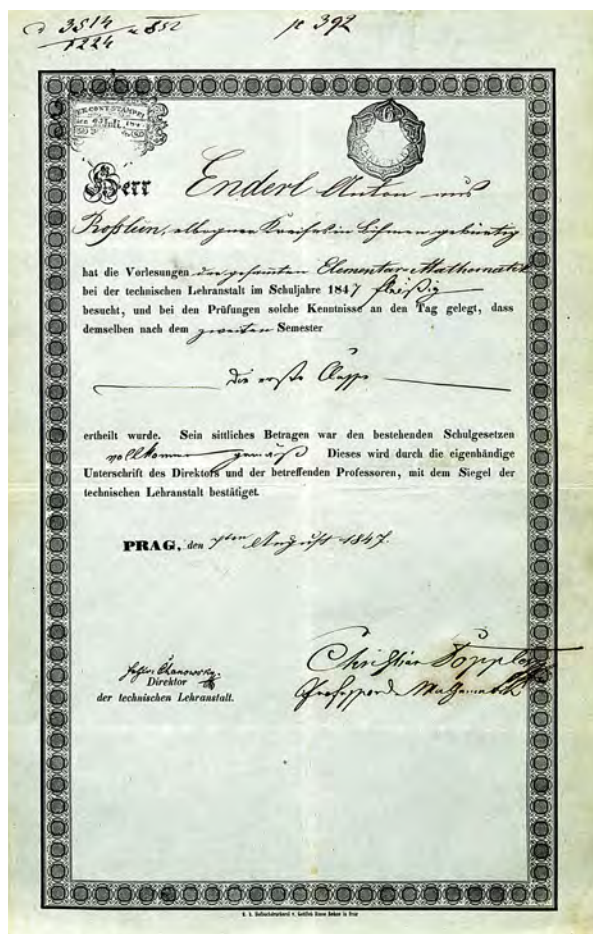 3514
1224
852
392
Herr Enderl Anton aus
gebürtig
hat die Vorlesungen der gesammten Elementar-Mathematik
bei der technischen Lehranstalt im Schuljahre 1847 fleißig
besucht, und bei den Prüfungen solche Kenntnisse an den Tag gelegt, dass
demselben nach dem zweiten Semester
die erste Classe
ertheilt wurde. Sein sittliches Betragen war den bestehenden Schulgesetzen
vollkommen gemäß Dieses wird durch die eigenhändige
Unterschrift des Direktors und der betreffenden Professoren, mit dem Siegel der
technischen Lehranstalt bestätiget.
PRAG, den August 1847.
Christian Doppler
Professor der Mathematik
Direktor
der technischen Lehranstalt.